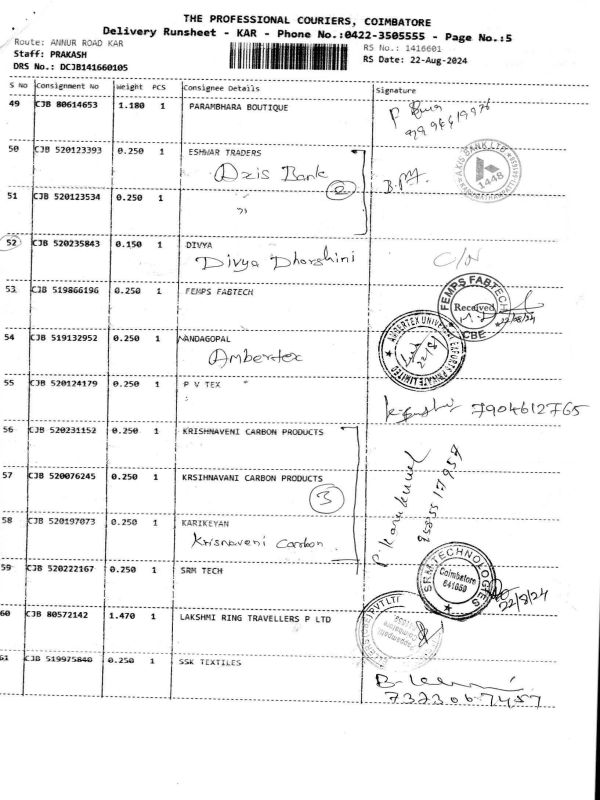 THE PROFESSIONAL COURIERS, COIMBATORE
Delivery Runsheet - KAR - Phone No.:0422-3505555 - Page No.:5
Route: ANNUR ROAD KAR
RS No.: 1416601
Staff: PRAKASH
RS Date: 22-Aug-2024
DRS No.: DCJB141660105
S No Consignment No Weight PCS Consignee Details Signature
49 CJB 80614653 1.180 1 PARAMBHARA BOUTIQUE
50 CJB 520123393 0.250 1 ESHWAR TRADERS
Axis Bank
2
AXIS BANK LTD
1448
51 CJB 520123534 0.250 1
"
52 CJB 520235843 0.150 1 DIVYA
Divya Dharshini
C/N
53 CJB 519866196 0.250 1 FEMPS FABTECH
FEMPS FABTECH
Received
22/08/24
CBE
54 CJB 519132952 0.250 1 NANDAGOPAL
Ambertex
AMBERTEX UNIVERSAL EXPORTS PRIVATE LIMITED
55 CJB 520124179 0.250 1 P V TEX
7904612765
56 CJB 520231152 0.250 1 KRISHNAVENI CARBON PRODUCTS
57 CJB 520076245 0.250 1 KRSIHNAVANI CARBON PRODUCTS
3
58 CJB 520197073 0.250 1 KARIKEYAN
Krisnaveni Carbon
59 CJB 520222167 0.250 1 SRM TECH
SRM TECHNOLOGIES
Coimbatore
22/8/24
60 CJB 80572142 1.470 1 LAKSHMI RING TRAVELLERS P LTD
61 CJB 519975840 0.250 1 SSK TEXTILES